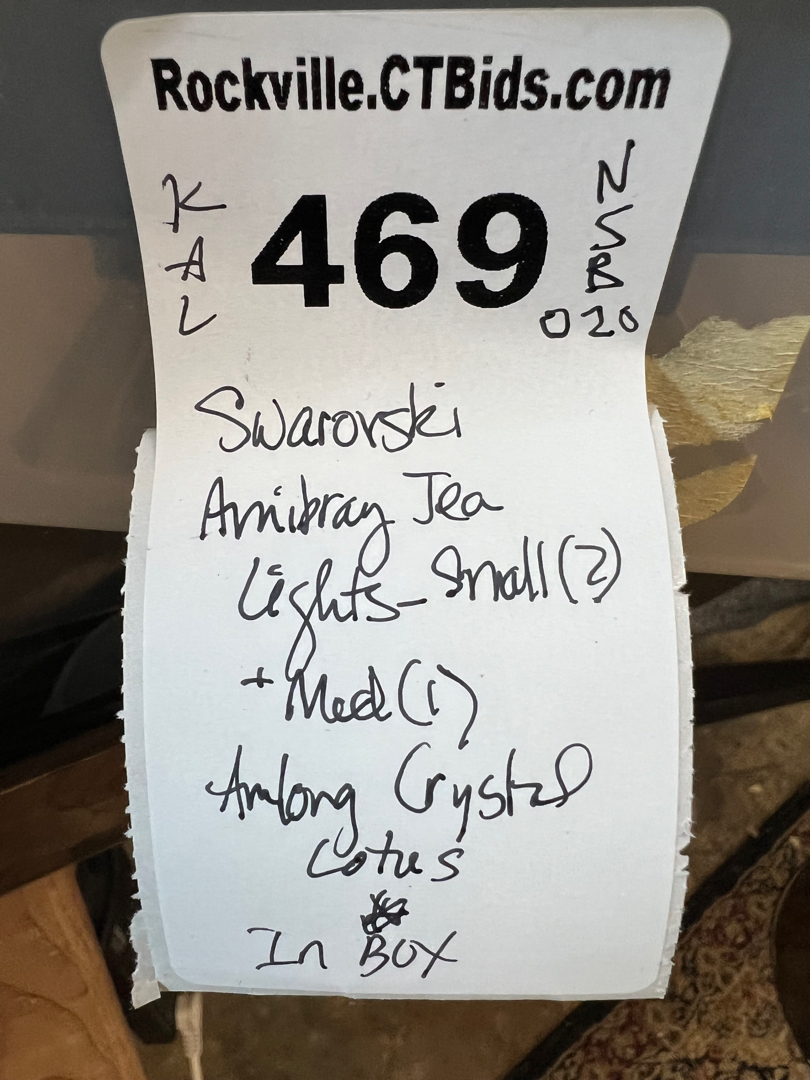 Rockville.CTBids.com
KAL
469
NSB
020
Swarovski
Amibray Tea
Lights - Small (2)
+ Med (1)
Amlong Crystal
Lotus
In BOX